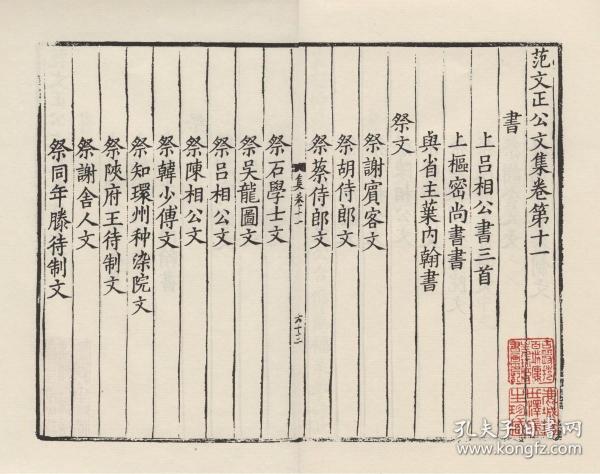 范文正公文集卷第十一
書
上呂相公書三首
上樞密尚書書
與省主葉內翰書
祭文
祭謝賓客文
祭胡侍郎文
祭蔡侍郎文
祭石學士文
祭吴龍圖文
祭呂相公文
祭陳相公文
祭韓少傅文
祭知環州种染院文
祭陝府王待制文
祭謝舍人文
祭同年滕待制文
孔夫子旧书网